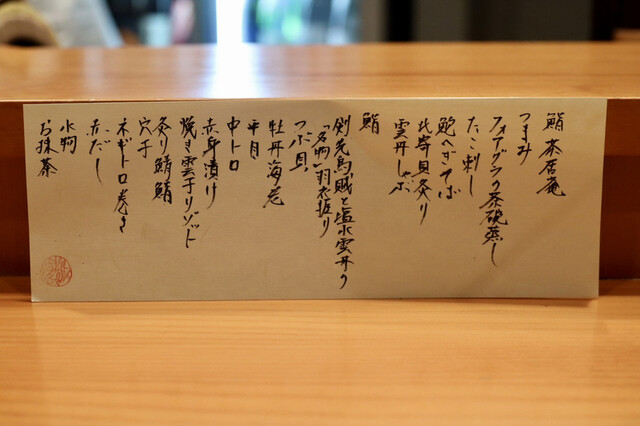 鮨 茶居庵
つまみ
フォアグラの茶碗蒸し
たこ刺し
鮑へぎそば
北寄貝炙り
雲丹しゃぶ
鮨
剣先烏賊と塩水雲丹の
「名物」羽衣握り
つぶ貝
牡丹海老
平目
中トロ
赤身漬け
焼き雲子リゾット
炙り鯖鮨
穴子
ネギトロ巻き
赤だし
水物
お抹茶